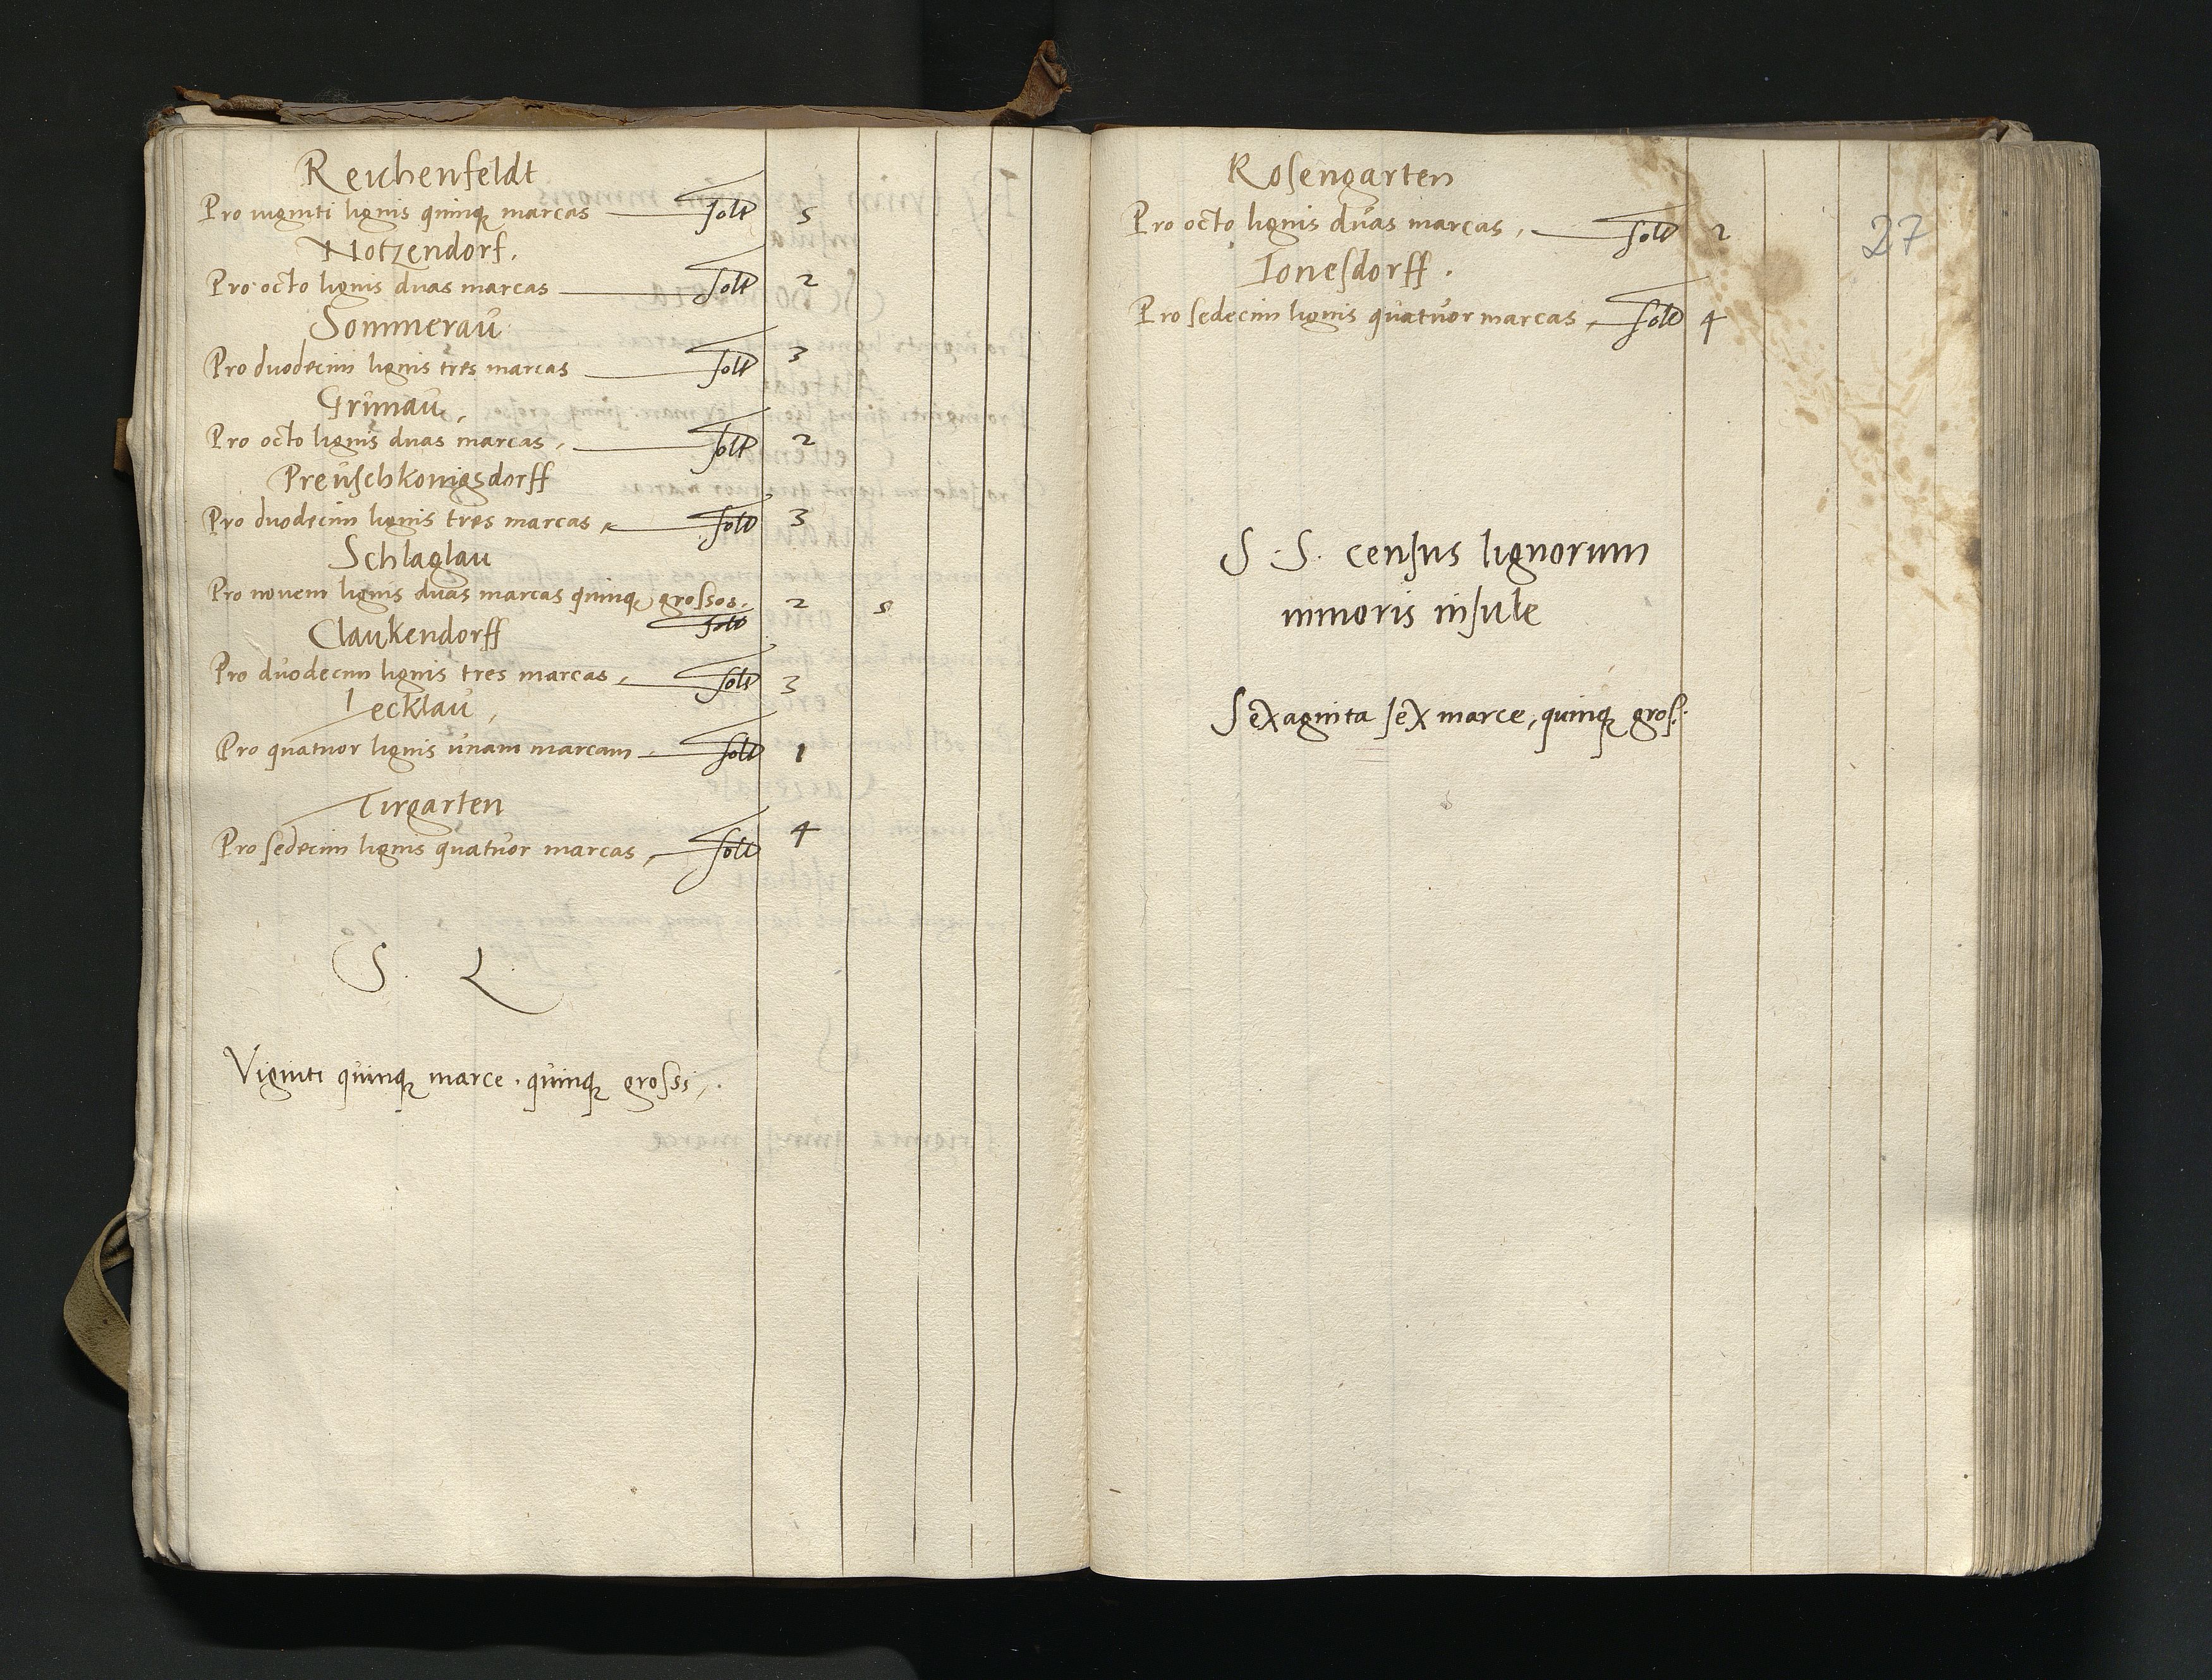 Reichenfeldt
Pro viginti lignis quinq marcas solt 5
Notzendorf.
Pro octo lignis duas marcas solt 2
Sommerau
Pro duodecim lignis tres marcas solt 3
Grunau,
Pro octo lignis duas marcas, solt 2
Preuschkonigsdorff
Pro duodecim lignis tres marcas, solt 3
Schlaglau
Pro novem lignis duas marcas quinq grossos. 2 5
solt
Claukendorff
Pro duodecim lignis tres marcas, solt 3
Lecklau,
Pro quatuor lignis unam marcam, solt 1
Tirgarten
Pro sedecim lignis quatuor marcas, solt 4
S. L.
Viginti quinq marce. quinq grossi,.
27
Rosengarten
Pro octo lignis duas marcas, solt 2
Ionesdorff.
Pro sedecim lignis quatuor marcas, solt 4
S. S. census lignorum
minoris insule
Sexaginta sex marce, quinq gros.